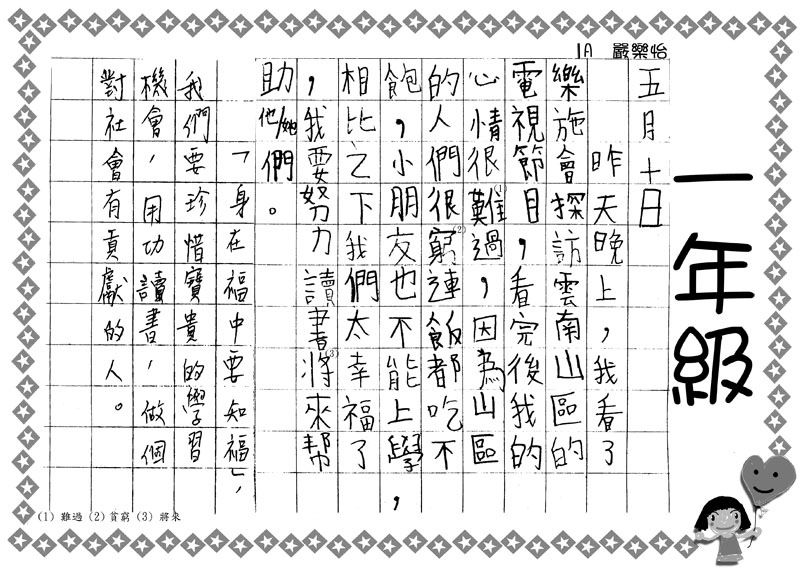 1A 嚴樂怡
一年級
五月十日
昨天晚上，我看了
樂施會探訪雲南山區的
電視節目，看完後我的
心情很難(1)過，因為山區
的人們很窮(2)連飯都吃不
飽，小朋友也不能上學，
相比之下我們太幸福了
，我要努力讀書將(3)來幫
助他/她們。
「身在福中要知福」，
我們要珍惜寶貴的學習
機會，用功讀書，做個
對社會有貢獻的人。
(1) 難過 (2) 貧窮 (3) 將來